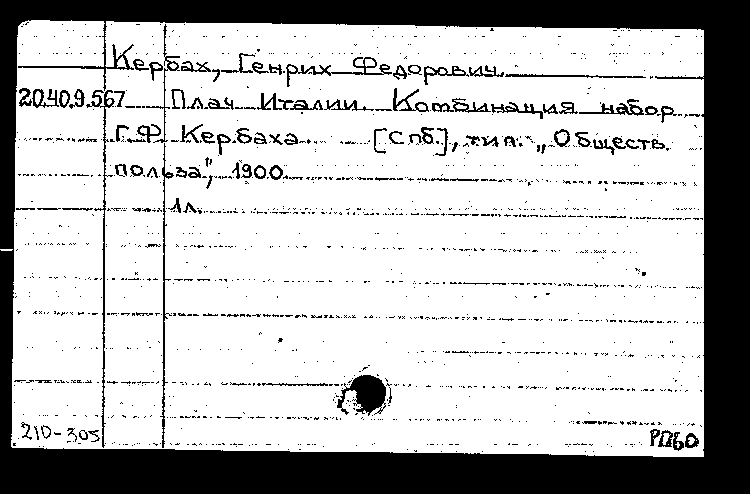 Кербах, Генрих Федорович.
20.40.9.567 Плач Италии. Комбинация набор
Г.Ф. Кербаха. [Спб.], тип. „Обществ.
польза", 1900.
1л.
210-305 РПБО